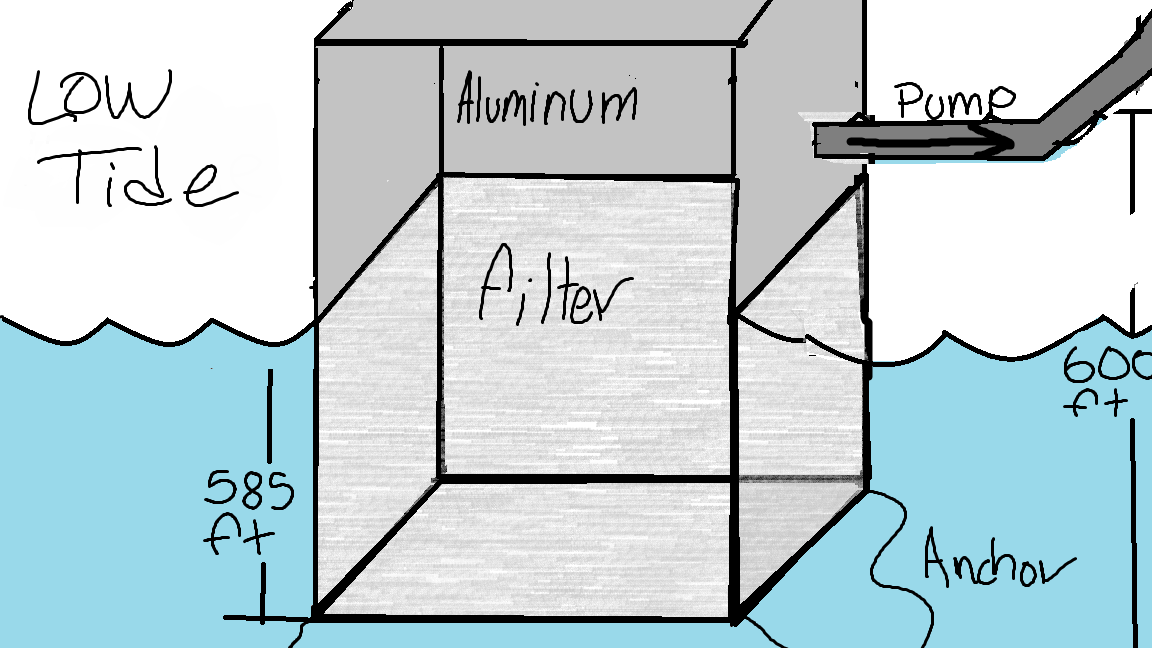 LOW
Tide
Aluminum
Pump
Filter
600
ft
585
ft
Anchor